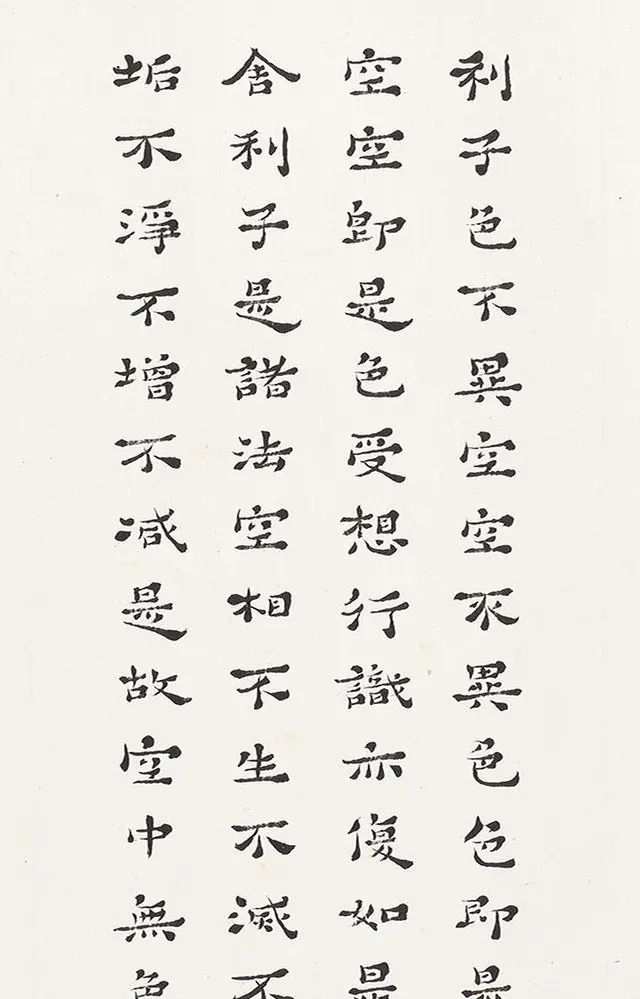 利子色不異空空不異色色即是
空空即是色受想行識亦復如是
舍利子是諸法空相不生不滅不
垢不淨不增不减是故空中無色